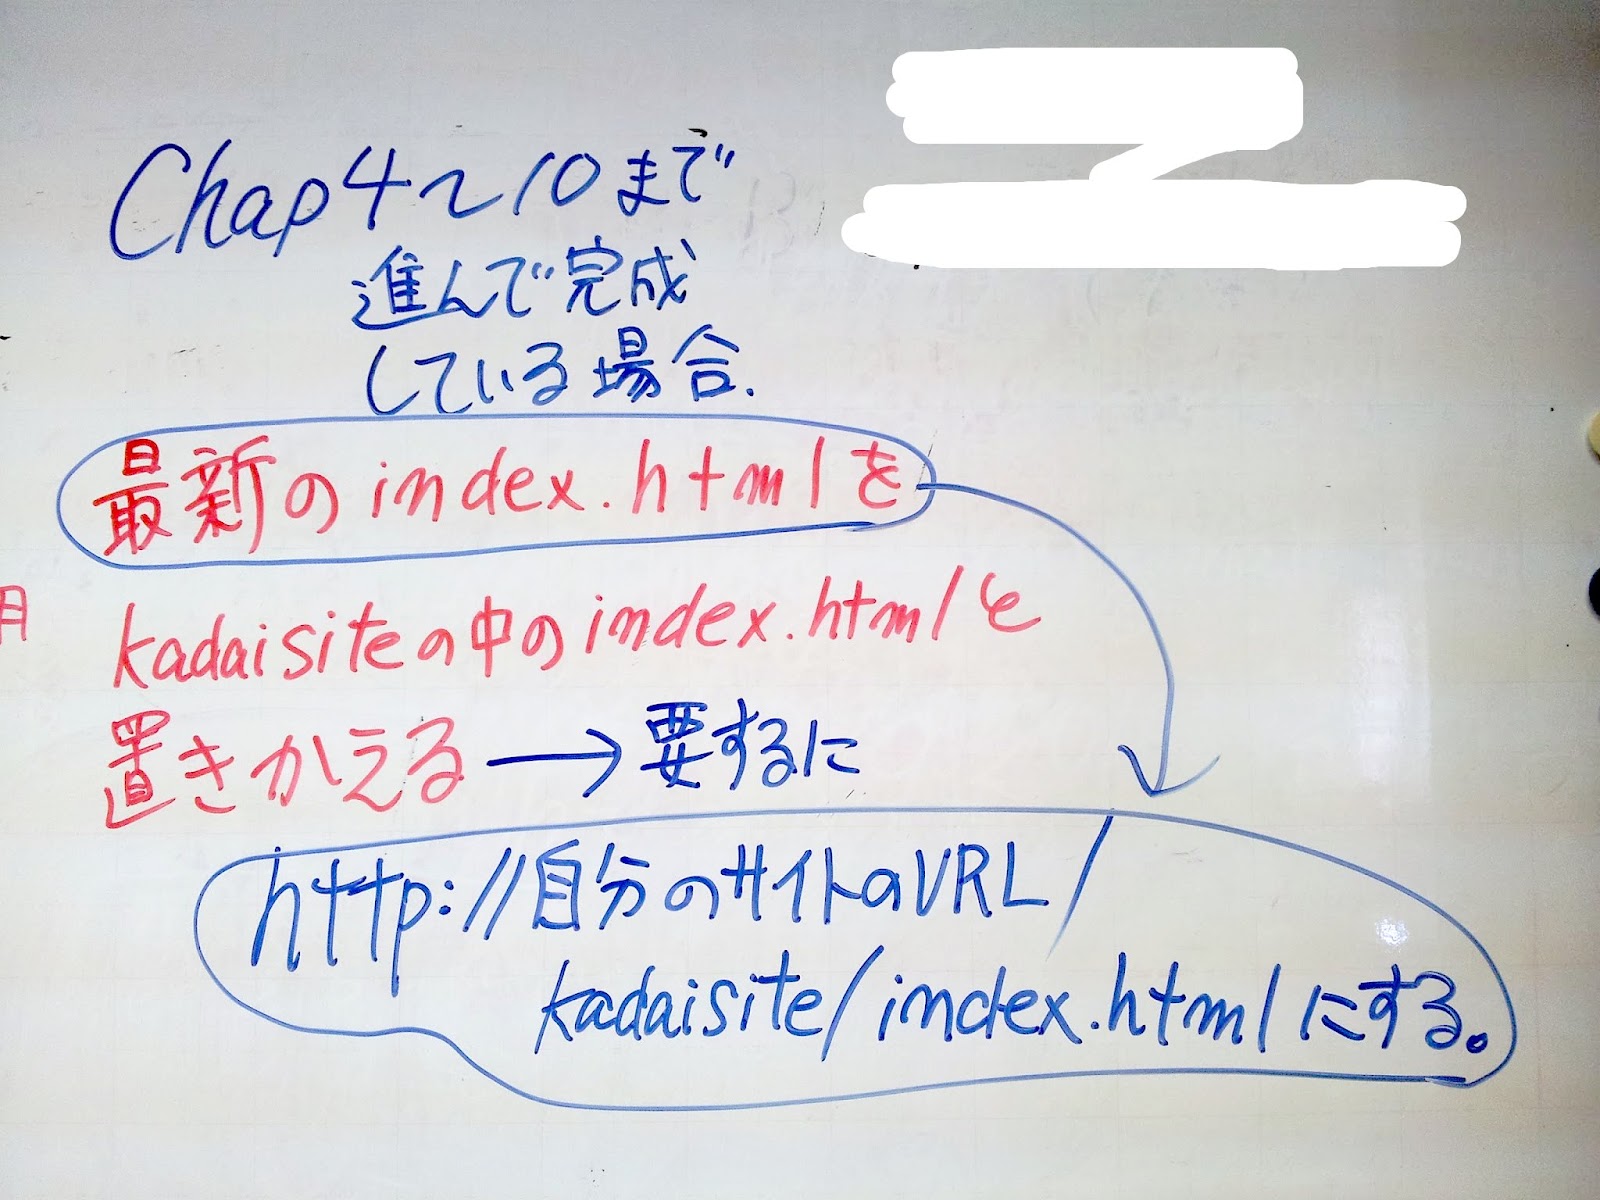 Chap4〜10まで
進んで完成
している場合.
最新のindex.htmlを
kadaisiteの中のindex.htmlと
置きかえる→要するに
http://自分のサイトのURL/
kadaisite/index.htmlにする。
月